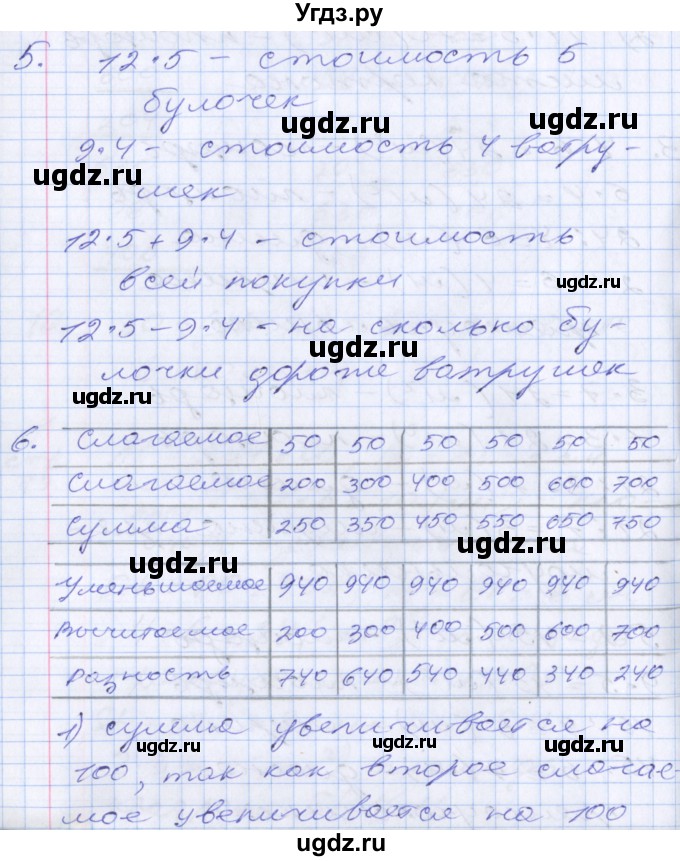 Угдз.ру
5. 12·5 – стоимость 5
булочек
ugdz.ru ugdz.ru
9·4 – стоимость 4 ватру-
ugdz.ru ugdz.ru
шек
12·5+9·4 – стоимость
всей покупки
ugdz.ru
12·5–9·4 – на сколько бу-
ugdz.ru
лочки дороже ватрушек
ugdz.ru ugdz.ru
6. Слагаемое 50 50 50 50 50 50
Слагаемое 200 300 400 500 600 700
Сумма 250 350 450 550 650 750
ugdz.ru ugdz.ru
Уменьшаемое 940 940 940 940 940 940
ugdz.ru
Вычитаемое 200 300 400 500 600 700
Разность 740 640 540 440 340 240
ugdz.ru ugdz.ru
1) сумма увеличивается на
ugdz.ru ugdz.ru ugdz.ru
100, так как второе слагае-
мое увеличивается на 100
ugdz.ru